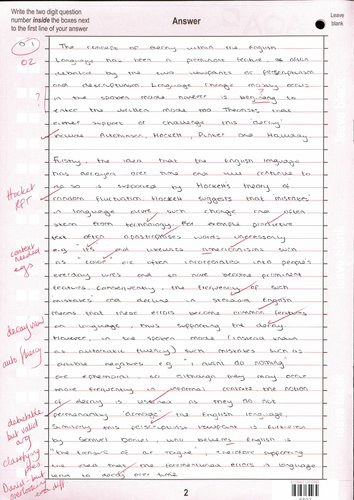 Write the two digit question
number inside the boxes next
to the first line of your answer
Answer
Leave
blank
01
02
The concept of decay within the English
Language has been a prominent feature of often
debated by the two viewpoints of prescriptivism
and descriptivism. Language change mainly occurs
in the spoken mode however is beginning to
enter the written mode too. Theorists that
either support or challenge this 'decay'
include Aitchinson, Hockett, Pinker and Halliday
?
Firstly, the idea that the English language
has decayed over time and will continue to
do so is supported by Hockett's theory of
random fluctuation. Hockett suggests that 'mistakes'
in language occur, such change can often
stem from technology. For example predictive
text often apostrophises words unnecessarily
e.g 'it's' and likewise americanisms such
as are often incorporated into people's
everyday lives and so have become prominent
features. Consequently, the frequency of such
mistakes and decline in standard English
means that these errors become common features
of language, thus supporting the decay.
However, in the spoken mode (instead known
as automatic fluency) such mistakes such as
double negatives e.g 'I didn't do nothing'
are ephemeral so although they may occur
more frequently in informal contexts the notion
of decay is lessened as they do not
permanently 'damage' the English language.
Similarly this prescriptivist viewpoint is
by Samuel Daniel who believes English is
"the treasure of our tongue", therefore supporting
the idea that the aforementioned errors in language
leave to decay over time.
Hocket
RFT
context
needed
egs
decay view
auto fluency
debatable
but valid
arg
classifying
Daniel - but
2